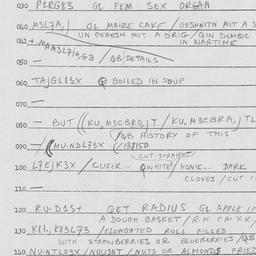 030 P1RG83 GL FEM SEX ORGAN
040 M3L7A,| GL MAIZE CAKE / GESHNITN MIT A S
UN GEGESN MIT A DRIG / GIN DEMBIC
041 + MAM3L7i,G3 / QB, DETAILS IN WARTIME
050 —
060 TAJGL83X Q BOILED IN SOUP
070 —
080 — BUT ((KU, M3CBRO,J / KU, M3CBRA,J TL
/QB HISTORY OF THIS
090 — ((MU.NDL73X (138150
(CUT STRAIGHT
100 L7EJK3X / CUKER- QWHITE / HONIK... DARK
CLOVES / CUT I
110 —
120 RU.D1S+ QET RADIUS GL APPLE IN
A DOUGH BASKET / R.H. CM Y.K.,
130 K1L, K83L73 / ELONGATED ROLL FILLED
WITH STRAWBERRIES OR BLUEBERRIES / QB
140 NU.NTL73X / NOU3NT / NUTS OR ALMONDS FRIED